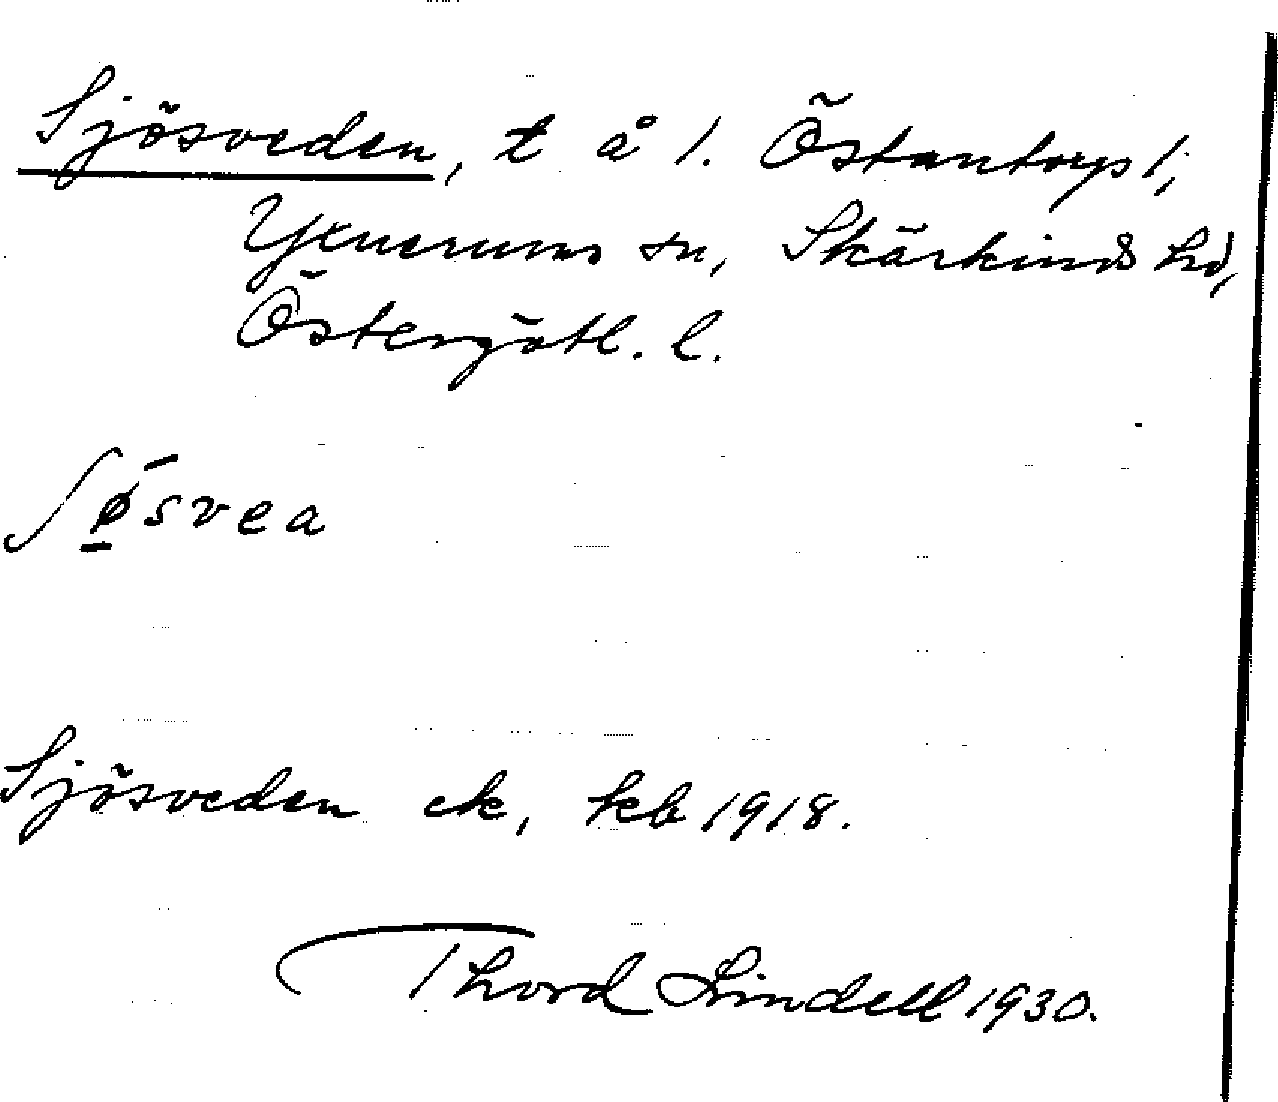 Sjösveden, t å 1. Östantorp 1;
Yxnerums sn, Skärkinds hd,
Östergötl. l.
ʃǿ̱svea
Sjösveden ek, kb 1918.
Thord Lindell 1930.